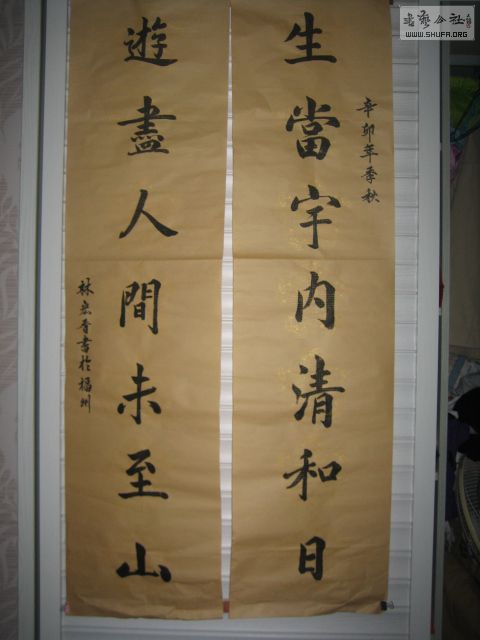 生當宇内清和日
辛卯年季秋
遊盡人間未至山
林宏香書於福州
書藝公社
WWW.SHUFA.ORG